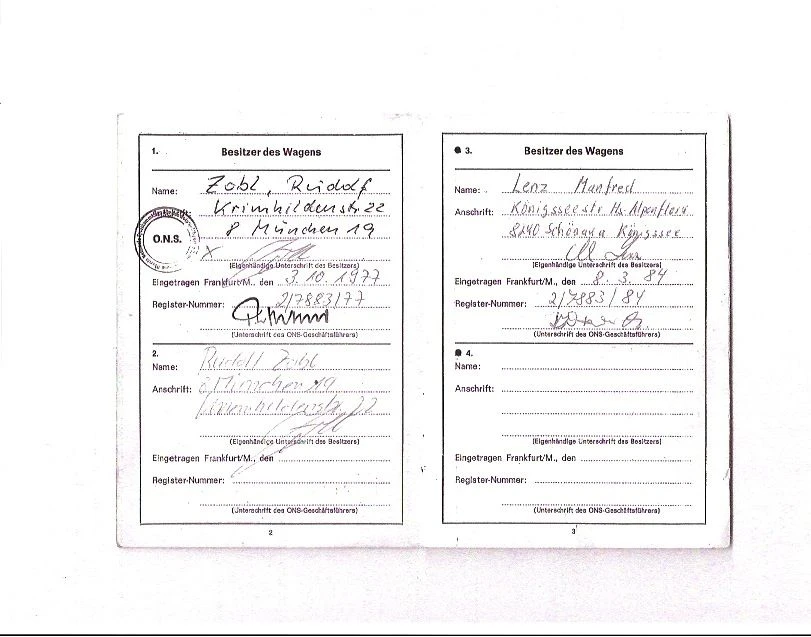 1. Besitzer des Wagens
Name: Zobl, Rudolf
Anschrift: Krimhildenstr. 22
8 München 19
O.N.S.
X
(Eigenhändige Unterschrift des Besitzers)
Eingetragen Frankfurt/M., den 3.10.1977
Register-Nummer: 2/7883/77
(Unterschrift des ONS-Geschäftsführers)
2.
Name: Rudolf Zobl
Anschrift: 8 München 19
Krimhildenstr. 22
(Eigenhändige Unterschrift des Besitzers)
Eingetragen Frankfurt/M., den
Register-Nummer:
(Unterschrift des ONS-Geschäftsführers)
2
3. Besitzer des Wagens
Name: Lenz Manfred
Anschrift: Königsseestr. Hs. Alpenflora
8240 Schönau Königssee
(Eigenhändige Unterschrift des Besitzers)
Eingetragen Frankfurt/M., den 8. 3. 84
Register-Nummer: 2/7883/84
(Unterschrift des ONS-Geschäftsführers)
4.
Name:
Anschrift:
(Eigenhändige Unterschrift des Besitzers)
Eingetragen Frankfurt/M., den
Register-Nummer:
(Unterschrift des ONS-Geschäftsführers)
3